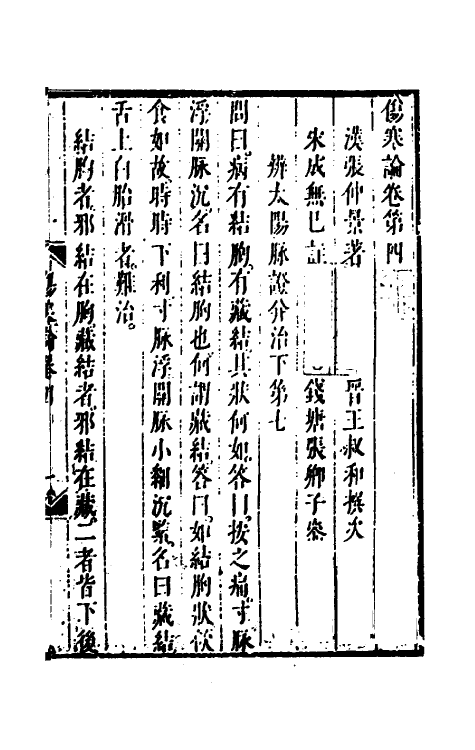 傷寒論卷第四
漢張仲景著　晉王叔和撰次
宋成無已註　錢塘張卿子參
辨太陽脉證并治下第七
問曰。病有結胸。有藏結。其狀何如。答曰。按之痛。寸脉
浮。關脉沉。名曰結胸也。何謂藏結。答曰。如結胸狀。飲
食如故。時時下利。寸脉浮。關脉小細沉緊。名曰藏結。
舌上白胎滑者。難治。
結胸者。邪結在胸。藏結者。邪結在藏。二者皆下後
傷寒論卷四